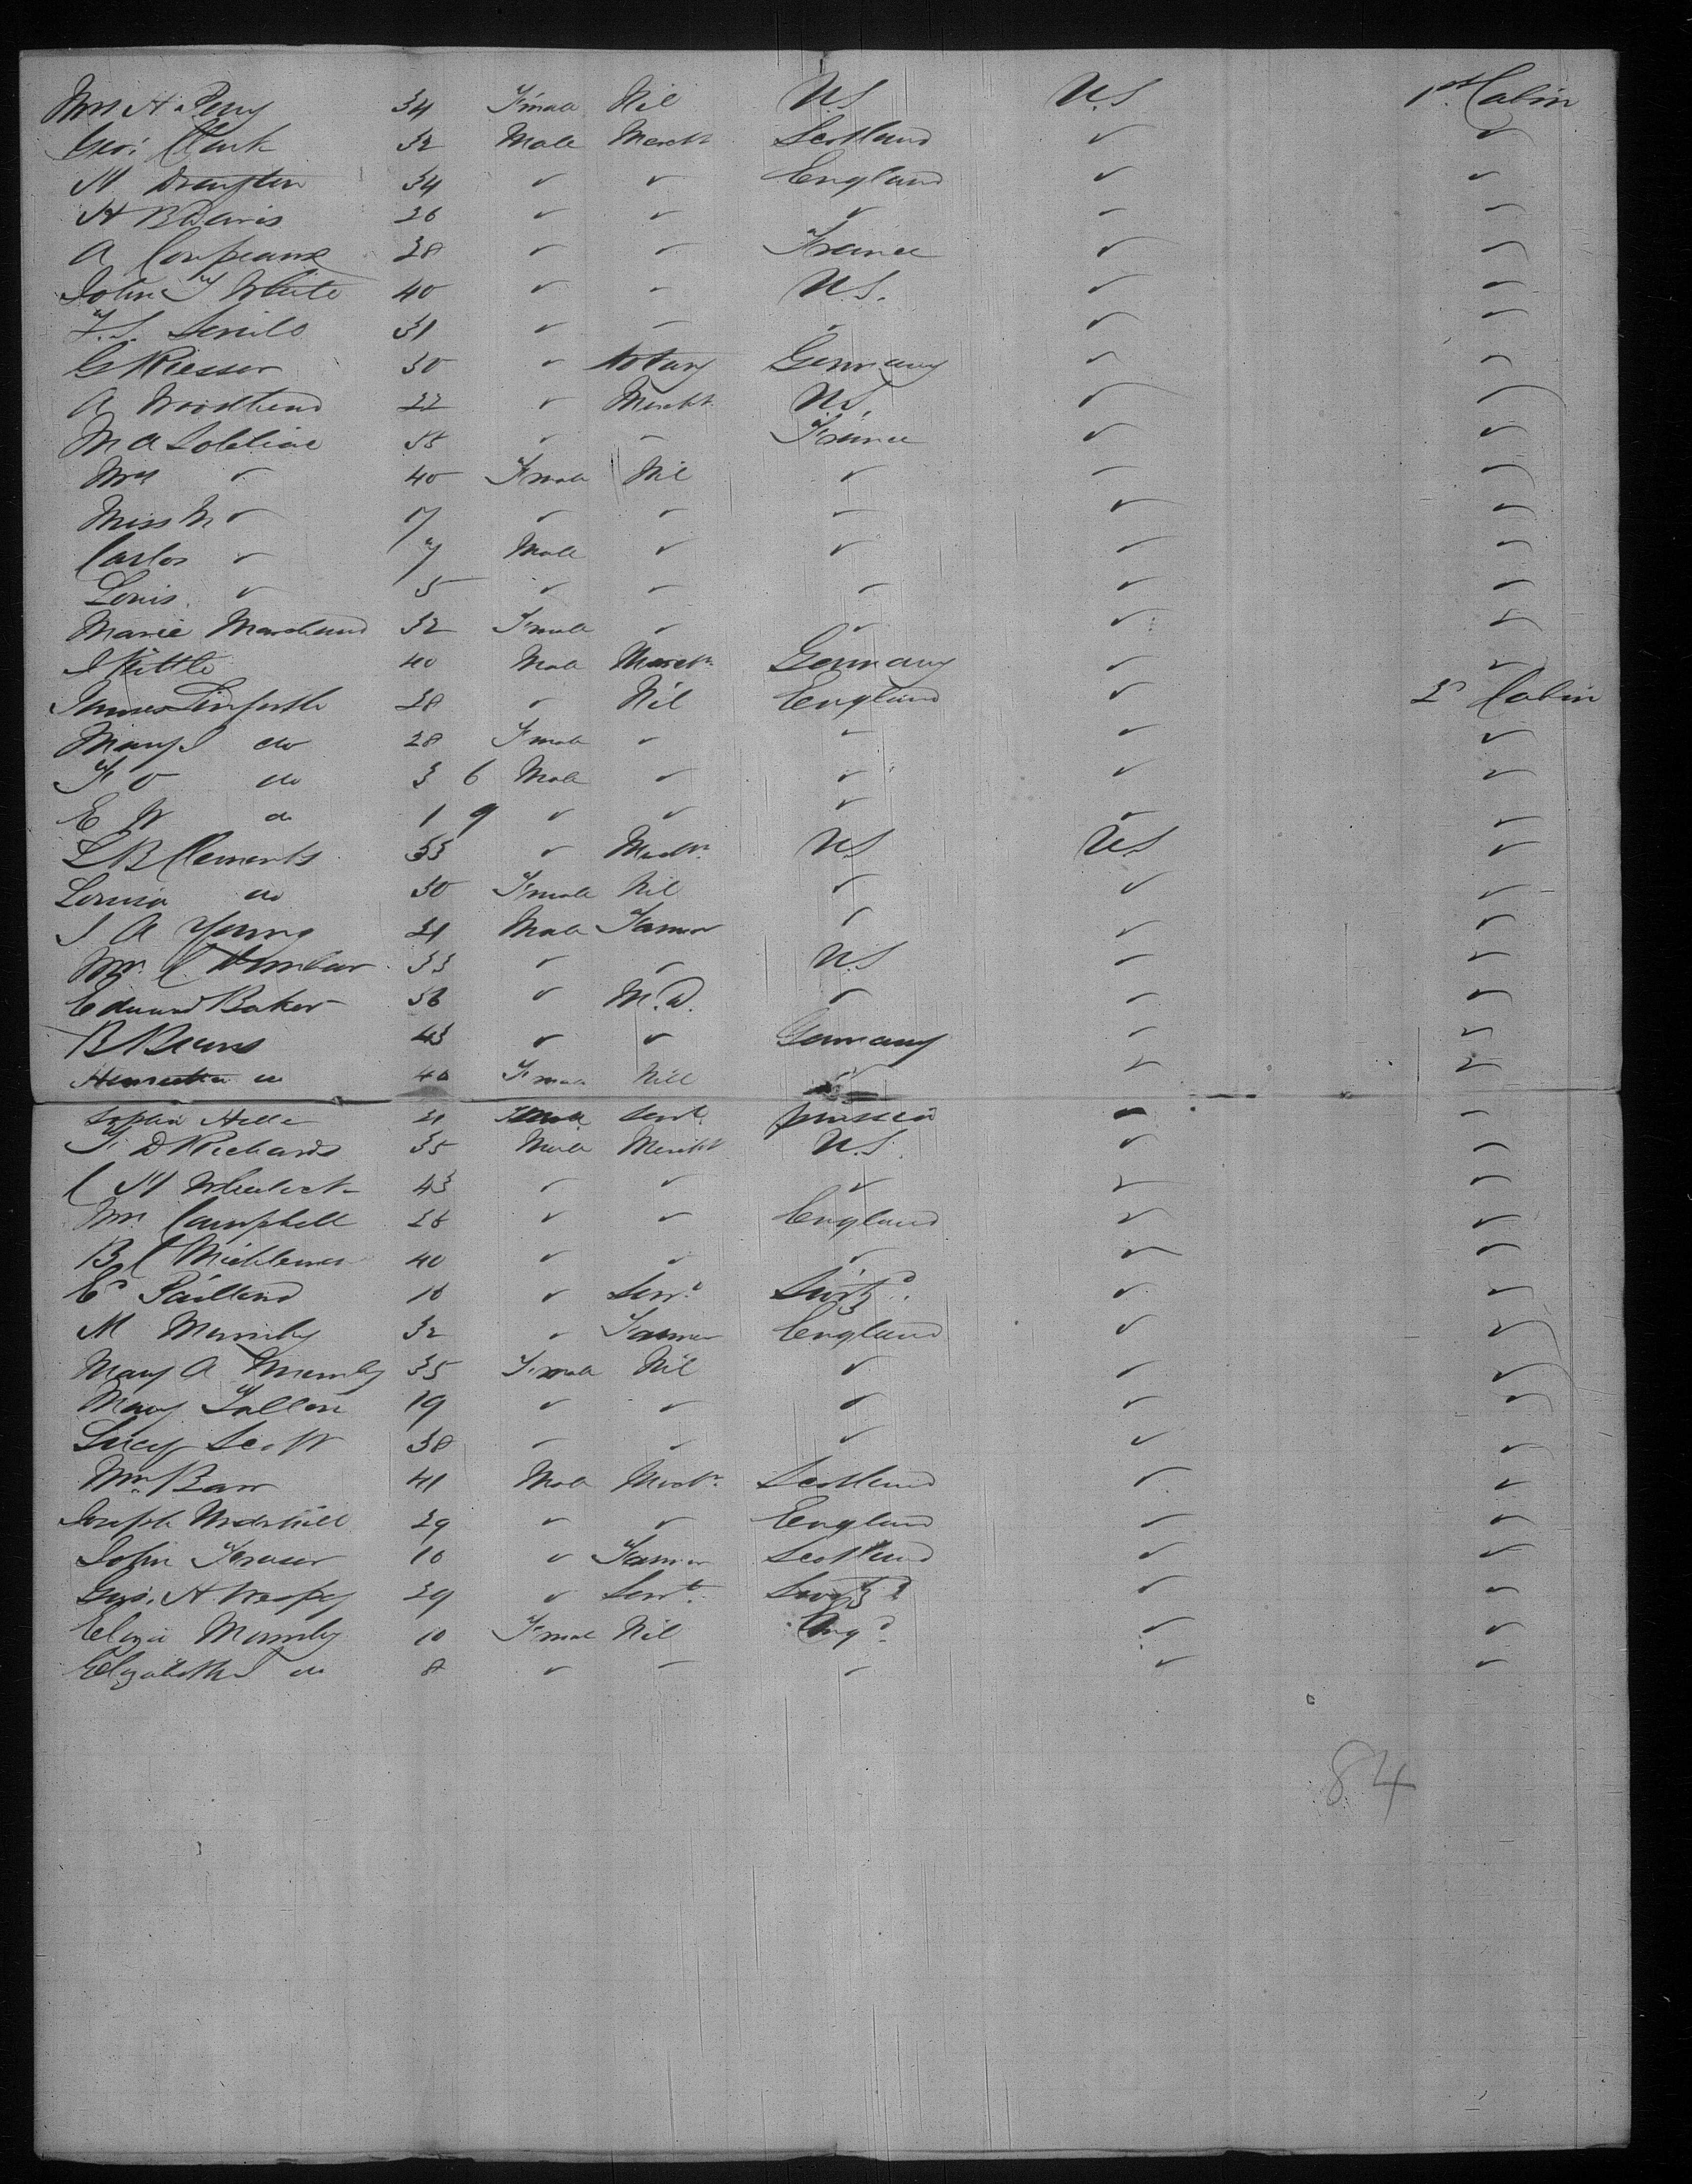 Mrs H Perry 34 Female Nil U.S U.S 1st Cabin
Geo: Clark 32 Male Mercht Scotland ✓ ✓
W Drayton 34 ✓ ✓ England ✓ ✓
H B Davis 26 ✓ ✓ ✓ ✓ ✓
A 28 ✓ ✓ France ✓ ✓
John T White 40 ✓ ✓ U.S. ✓ ✓
31 ✓ ✓ ✓ ✓ ✓
G Riesser 30 ✓ Notary Germany ✓ ✓
A Woodhend 22 ✓ Mercht U.S, ✓ ✓
M A ✓ ✓ France ✓ ✓
Mrs ✓ 40 Female Nil ✓ ✓ ✓
Miss M ✓ ✓ ✓ ✓ ✓ ✓
Carlos ✓ 7 Male ✓ ✓ ✓ ✓
Louis ✓ 5 ✓ ✓ ✓ ✓ ✓
Marie Marchand 32 Female ✓ ✓ ✓ ✓
40 Male Mercht Germany ✓ ✓
James Linforth 28 ✓ Nil England ✓ 2d Cabin
Mary J do 28 Female ✓ ✓ ✓ ✓
F O do 3 6 Male ✓ ✓ ✓ ✓
E W do 1 9 ✓ ✓ ✓ ✓ ✓
L B Clements 33 ✓ Mercht U.S U.S ✓
Louisa do 30 Female Nil ✓ ✓ ✓
J A Young 21 Male Farmer ✓ ✓ ✓
Wm C Dunbar 33 ✓ ✓ U.S ✓ ✓
Edward Baker 36 ✓ M.D. ✓ ✓ ✓
B Bruns 43 ✓ ✓ Germany ✓ ✓
Henrietta do 40 Female Nill ✓ ✓ ✓
Sophia Helle 21 Female Servt Prussia ✓ ✓
F D Richards 35 Male Mercht U.S. ✓ ✓
C H Wheelock 43 ✓ ✓ ✓ ✓ ✓
Wm Campbell 26 ✓ ✓ England ✓ ✓
B C 40 ✓ ✓ ✓ ✓ ✓
Ed Pailland 18 ✓ Servt Switzd. ✓ ✓
M Mumby 32 ✓ Farmer England ✓ ✓
Mary A Mumby 35 Female Nil ✓ ✓ ✓
Mary Fallon 19 ✓ ✓ ✓ ✓ ✓
Lucy Scott 38 ✓ ✓ ✓ ✓ ✓
Wm Barr 41 Male Mercht Scotland ✓ ✓
Joseph 29 ✓ ✓ England ✓ ✓
John Fraser 18 ✓ Farmer Scotland ✓ ✓
29 ✓ Servt. Switzd ✓ ✓
Eliza Mumby 10 Female Nil Engd. ✓ ✓
Elizabeth do 8 ✓ ✓ ✓ ✓ ✓
84